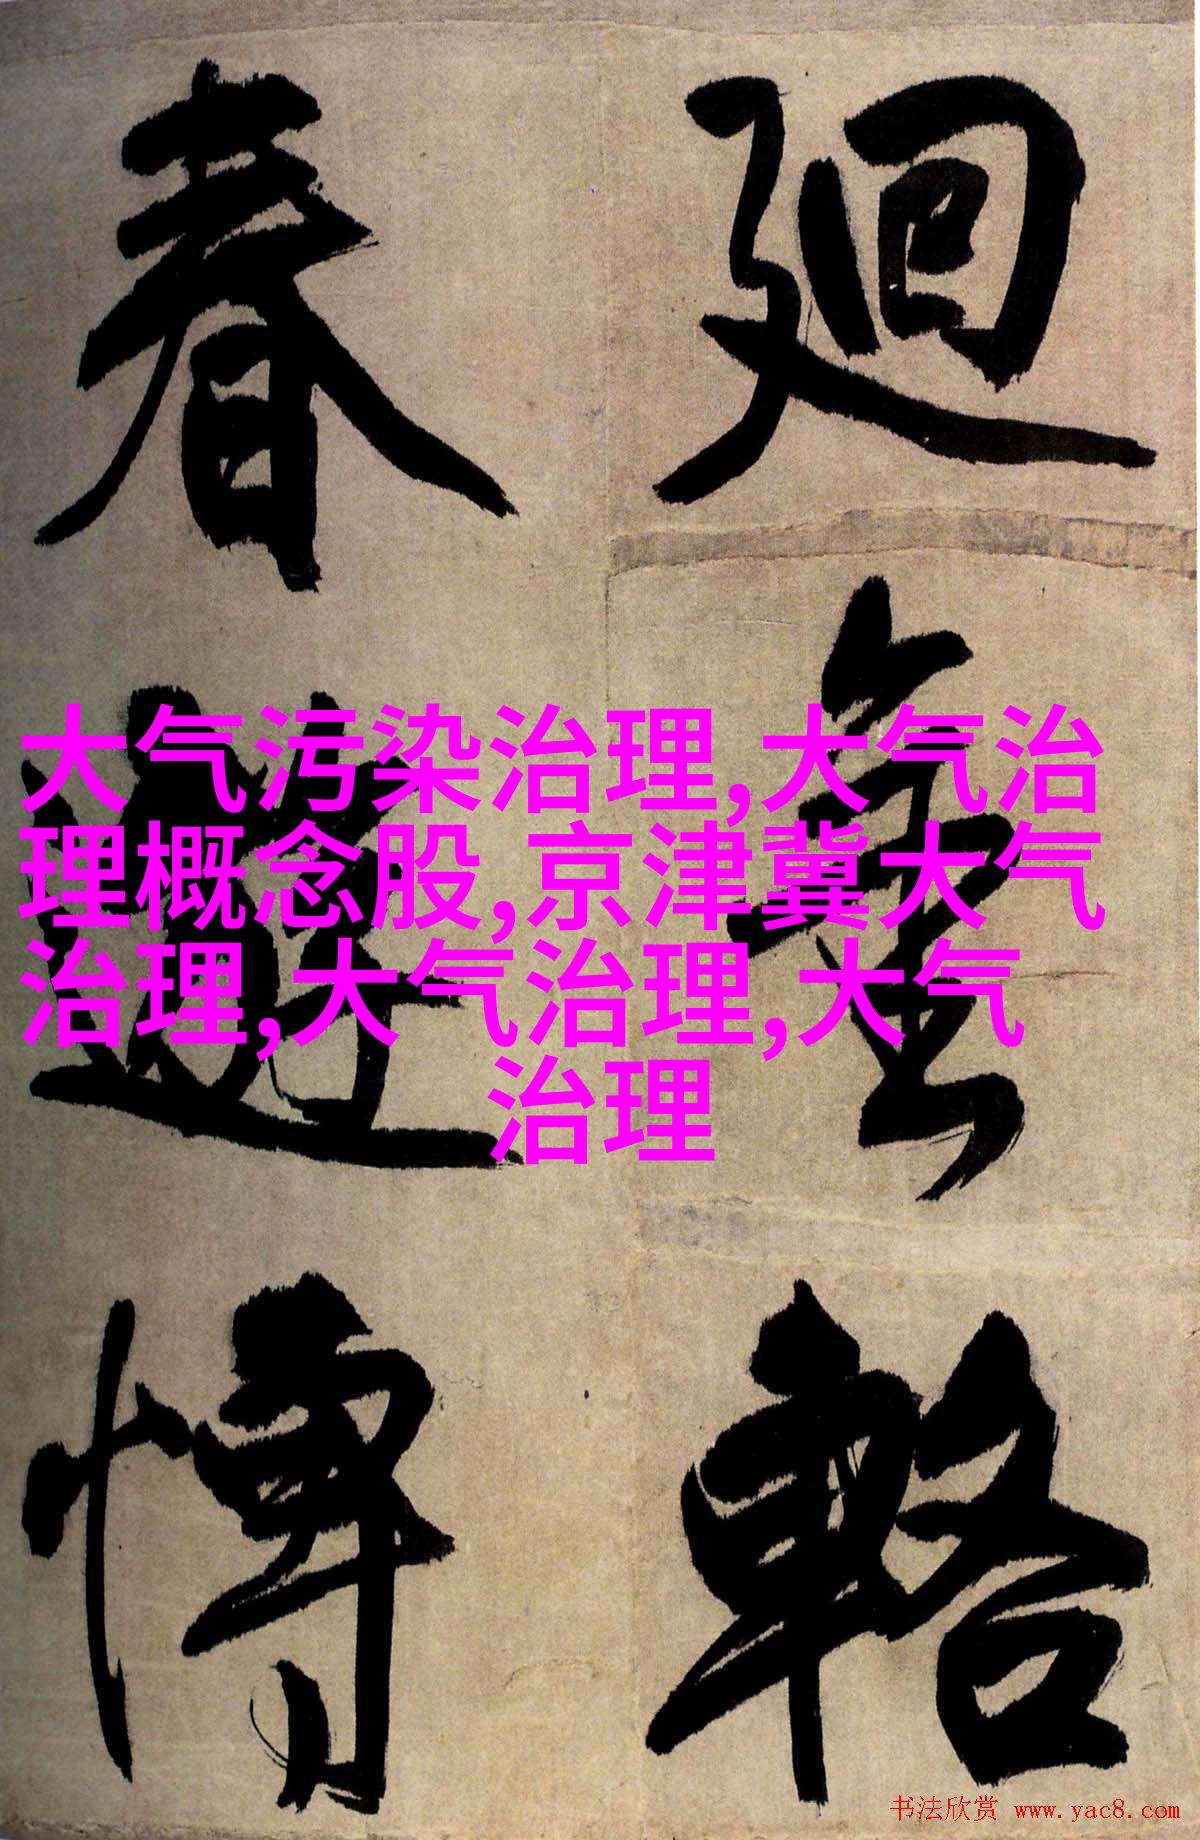 迴
輅
春
遊
博
大气污染治理,大气治
理概念股,京津冀大气
治理,大气治理,大气
治理
书法欣赏 www.yac8.com